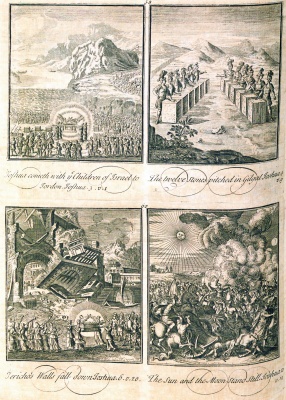 Joshua cometh with yͤ Children of Israel to
Jordon Joshua. 3. v. 1
The twelve Stones pitched in Gilgal Joshua 4
Jericho's Walls fall down Joshua. 6. v. 20.
The Sun and the Moon stand still Joshua 10